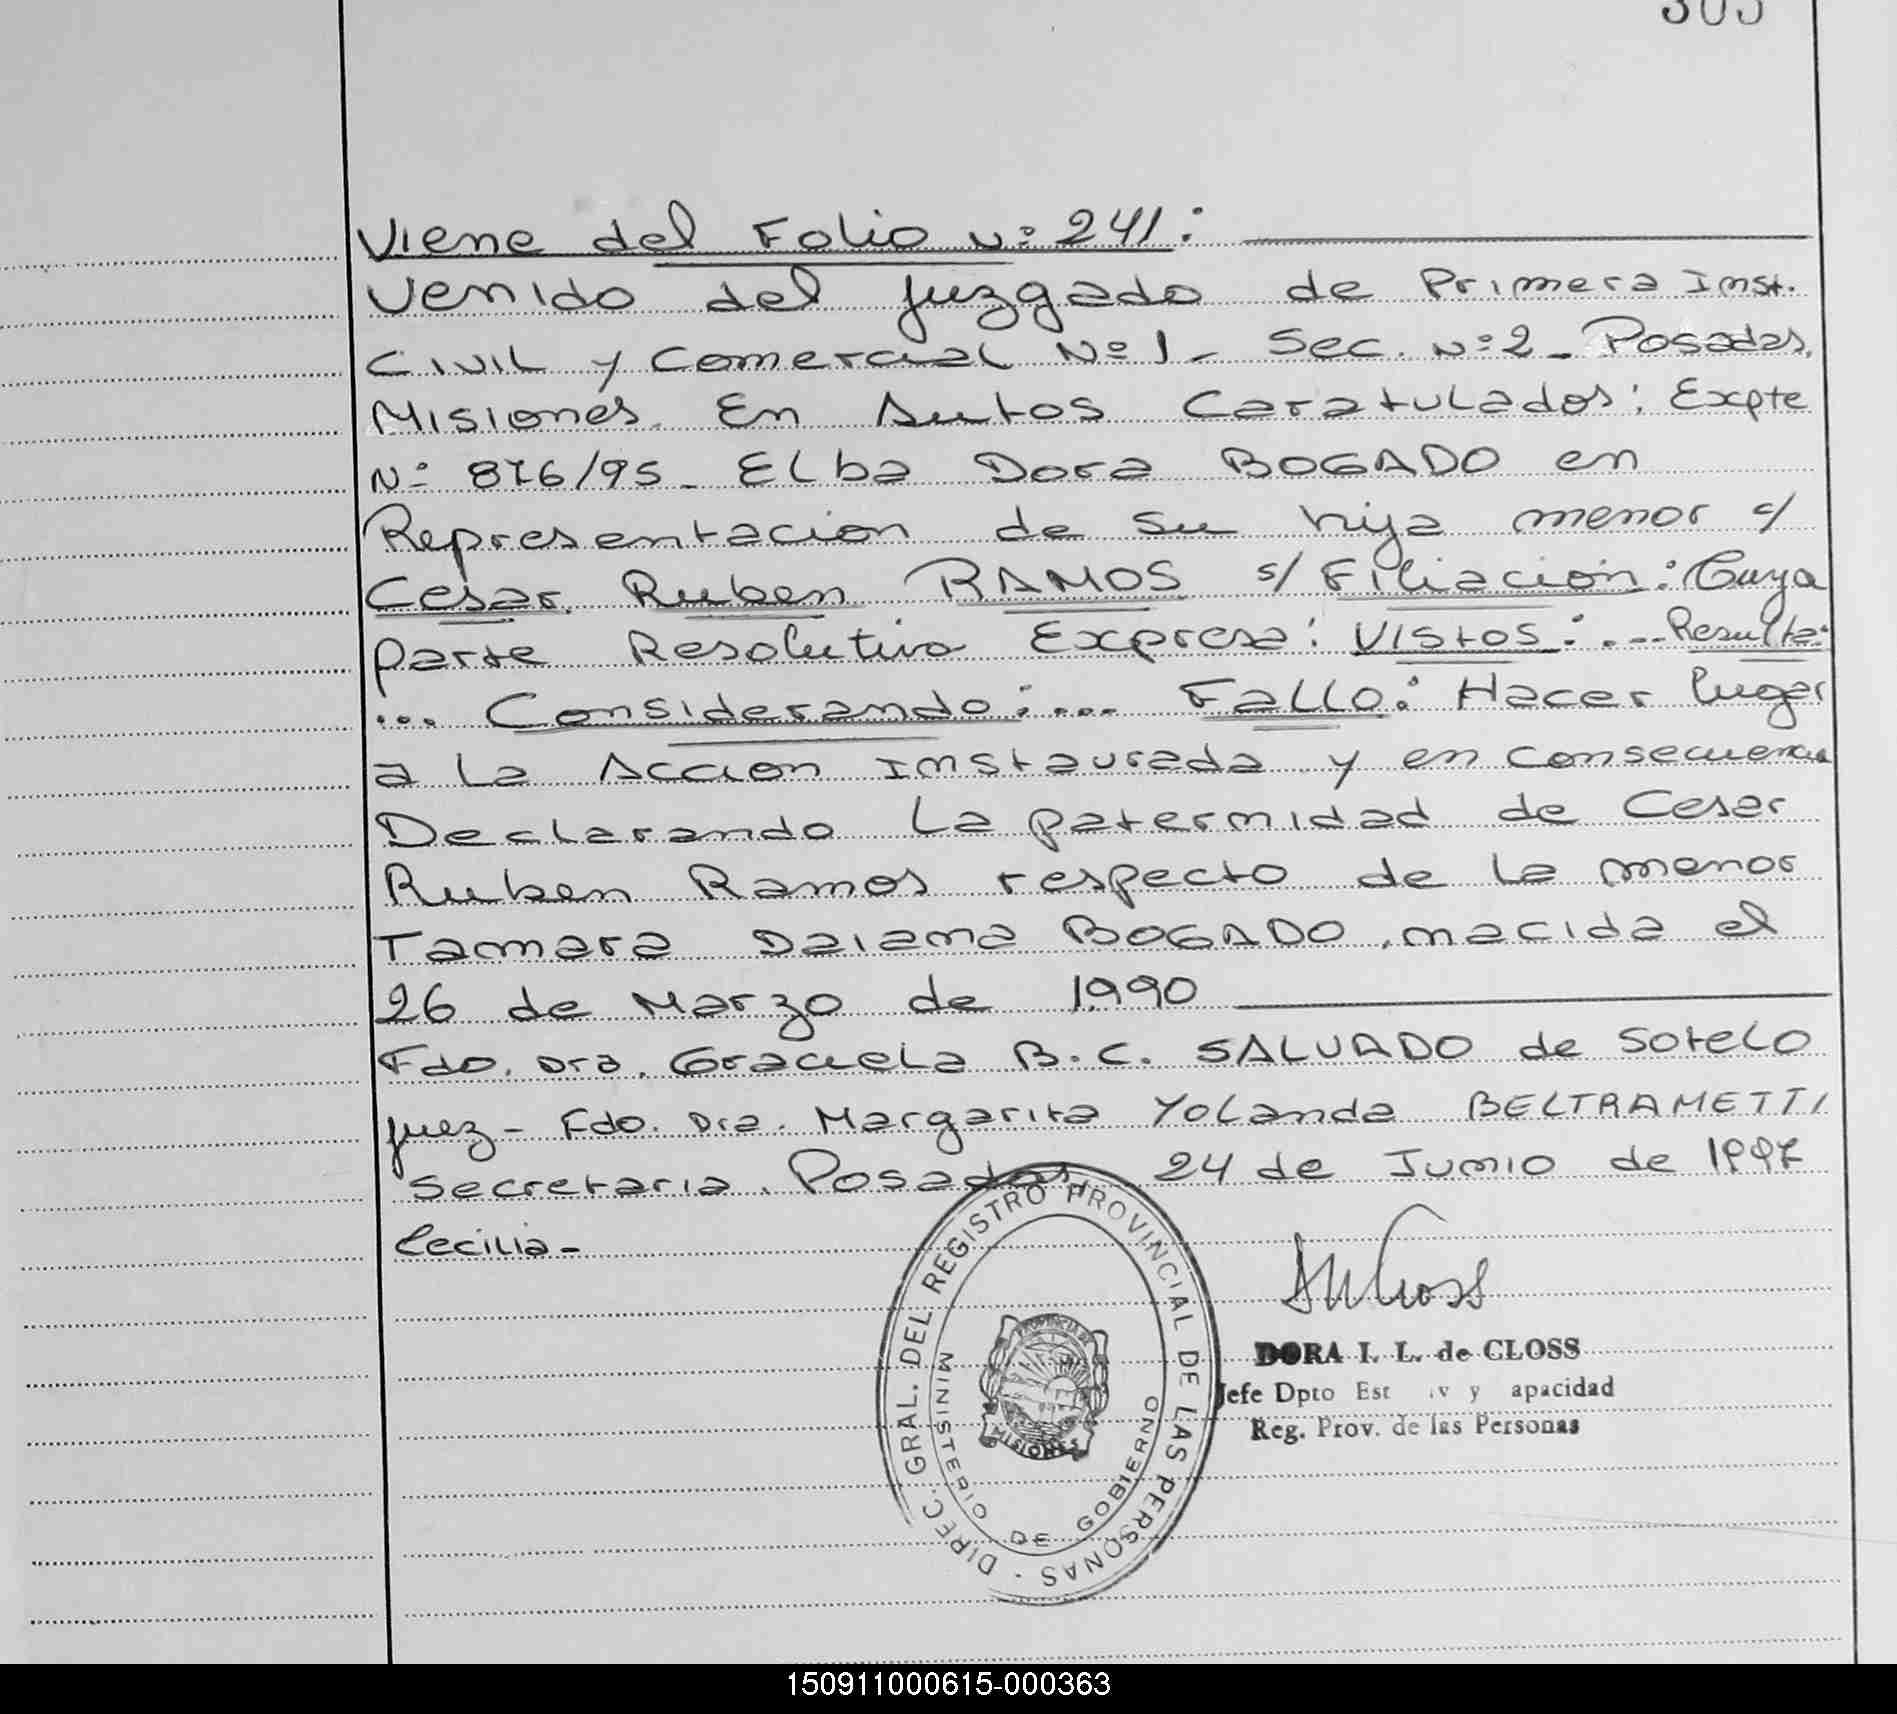 305
Viene del Folio Nº 241:
Venido del Juzgado de Primera Inst.
Civil y Comercial Nº 1 - Sec. Nº 2 - Posadas,
Misiones. En Autos Caratulados: Expte
Nº 876/95 - Elba Dora BOGADO en
Representacion de su hija menor c/
Cesar Ruben RAMOS s/ Filiacion: Cuya
parte Resolutiva Expresa: Vistos:... Resulta:
... Considerando:... Fallo: Hacer lugar
a la Accion Instaurada y en consecuencia
Declarando La paternidad de Cesar
Ruben Ramos respecto de la menor
Tamara Daiana BOGADO, nacida el
26 de Marzo de 1990
Fdo. Dra. Graciela B.C. SALVADO de Sotelo
Juez - Fdo. Dra. Margarita Yolanda BELTRAMETTI
Secretaria. Posadas, 24 de Junio de 1997
Cecilia -
DIREC. GRAL. DEL REGISTRO PROVINCIAL DE LAS PERSONAS -
MINISTERIO DE GOBIERNO
PROVINCIA DE
MISIONES
DORA I. L. de CLOSS
Jefe Dpto Est iv y apacidad
Reg. Prov. de las Personas
150911000615-000363